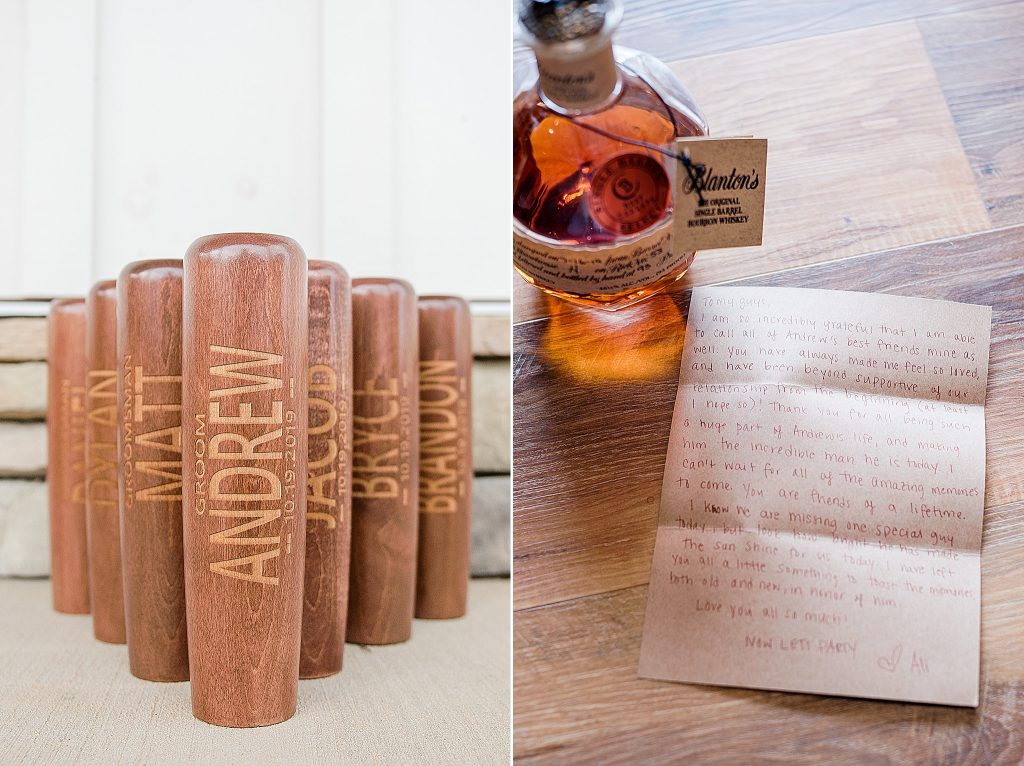 DANIEL
DYLAN
GROOMSMEN
MATT
GROOM
ANDREW
10.19.2019
JACOB
10.19.2019
BRYCE
10.19.2019
BRANDON
Blanton's
THE ORIGINAL
SINGLE BARREL
BOURBON WHISKEY
To my guys,
I am so incredibly grateful that I am able
to call all of Andrew's best friends mine as
well. You have always made me feel so loved,
and have been beyond supportive of our
relationship from the beginning (at least
I hope so)! Thank you for all being such
a huge part of Andrew's life, and making
him the incredible man he is today. I
can't wait for all of the amazing memories
to come. You are friends of a lifetime.
I know we are missing one special guy
today, but look how he has made
the sun shine for us today. I have left
you all a little something to toast the memories
both old and new in honor of him.
Love you all so much!
NOW LETS PARTY
♡ Ali